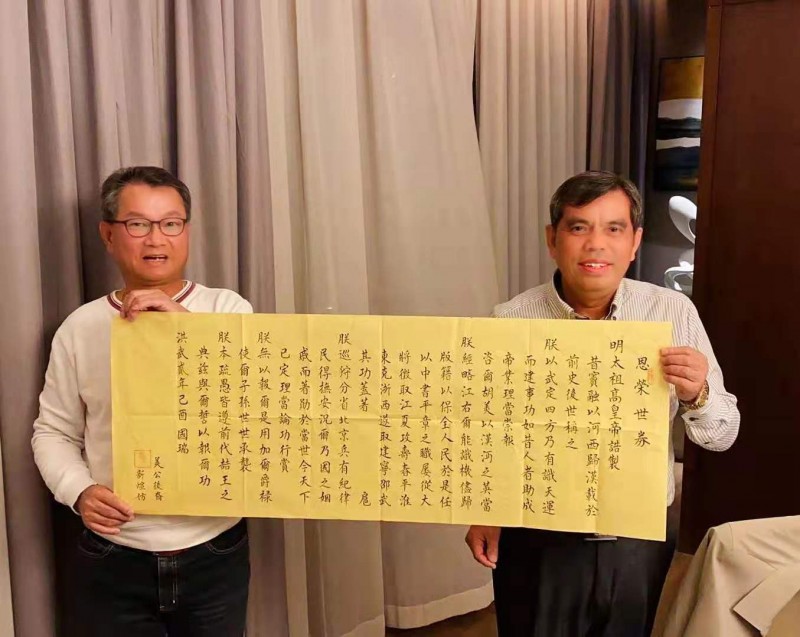 恩榮世券
明太祖高皇帝誥製
昔竇融以河西歸漢載於
前史後世稱之
朕以武定四方乃有識天運
而建事功如昔人者助成
帝業理當崇報
咨爾胡美以漢沔之英當
朕經略江右爾能識機儘歸
版籍以保全人民於是任
以中書平章之職屢從大
將徵取江夏攻壽春平淮
東克浙西進取建寧邵武
其功蓋著 扈
朕巡狩分省北京兵有紀律
民得撫安況爾乃國之姻
戚而著助於當世今天下
已定理當論功行賞
朕無以報爾是用加爾爵祿
使爾子孫世世承襲
朕本疏愚皆遵前代喆王之
典茲與爾誓以報爾功
洪武貳年己酉國瑞
美公後裔